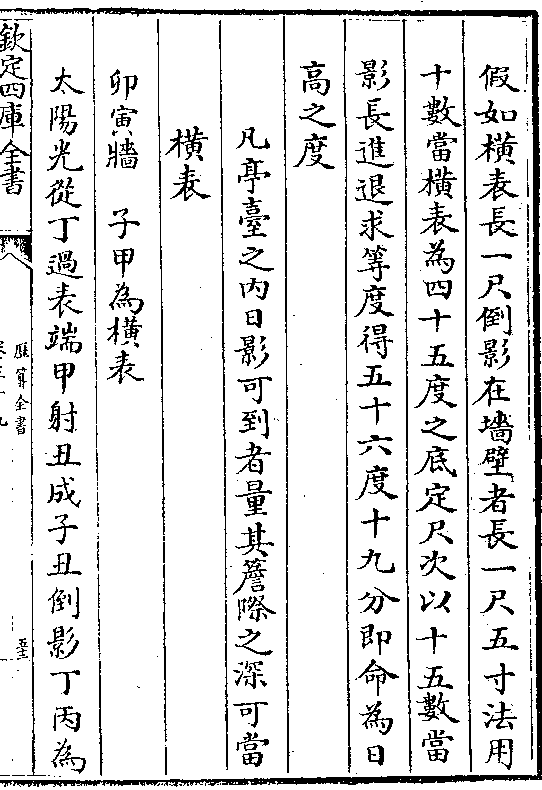 假如橫表長一尺倒影在墻壁者長一尺五寸法用
十數當橫表為四十五度之底定尺次以十五數當
影長進退求等度得五十六度十九分即命為日
高之度
凡亭臺之内日影可到者量其簷際之深可當
橫表
卯寅牆　子甲為橫表
太陽光從丁過表端甲射丑成子丑倒影丁丙為
欽定四庫全書
歷算全書